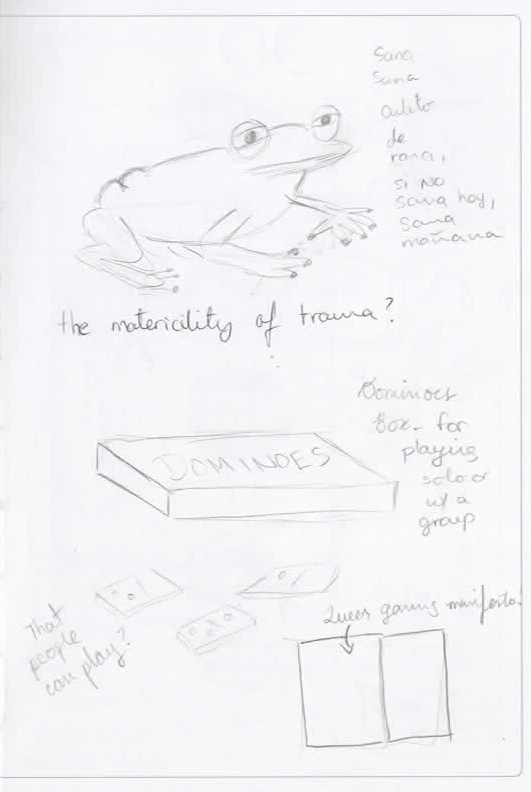 Sana
Sana
culito
de
rana,
si NO
sana hoy,
sana
mañana
the matericility of trauma?
Dominoes
Box - for
playing
solo or
w/ a
group
DOMINOES
That
people
can play?
Queer gaming manifesto!